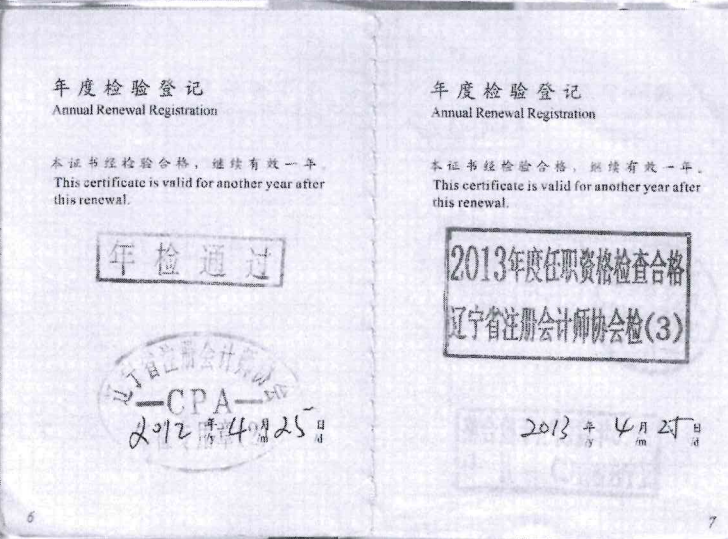 年度检验登记
Annual Renewal Registration
本证书经检验合格，继续有效一年。
This certificate is valid for another year after
this renewal.
年检通过
辽宁省注册会计师协会
CPA
2012年4月25日
/y /m /d
6
年度检验登记
Annual Renewal Registration
本证书经检验合格，继续有效一年。
This certificate is valid for another year after
this renewal.
2013年度任职资格检查合格
辽宁省注册会计师协会检(3)
2013年4月25日
/y /m /d
7